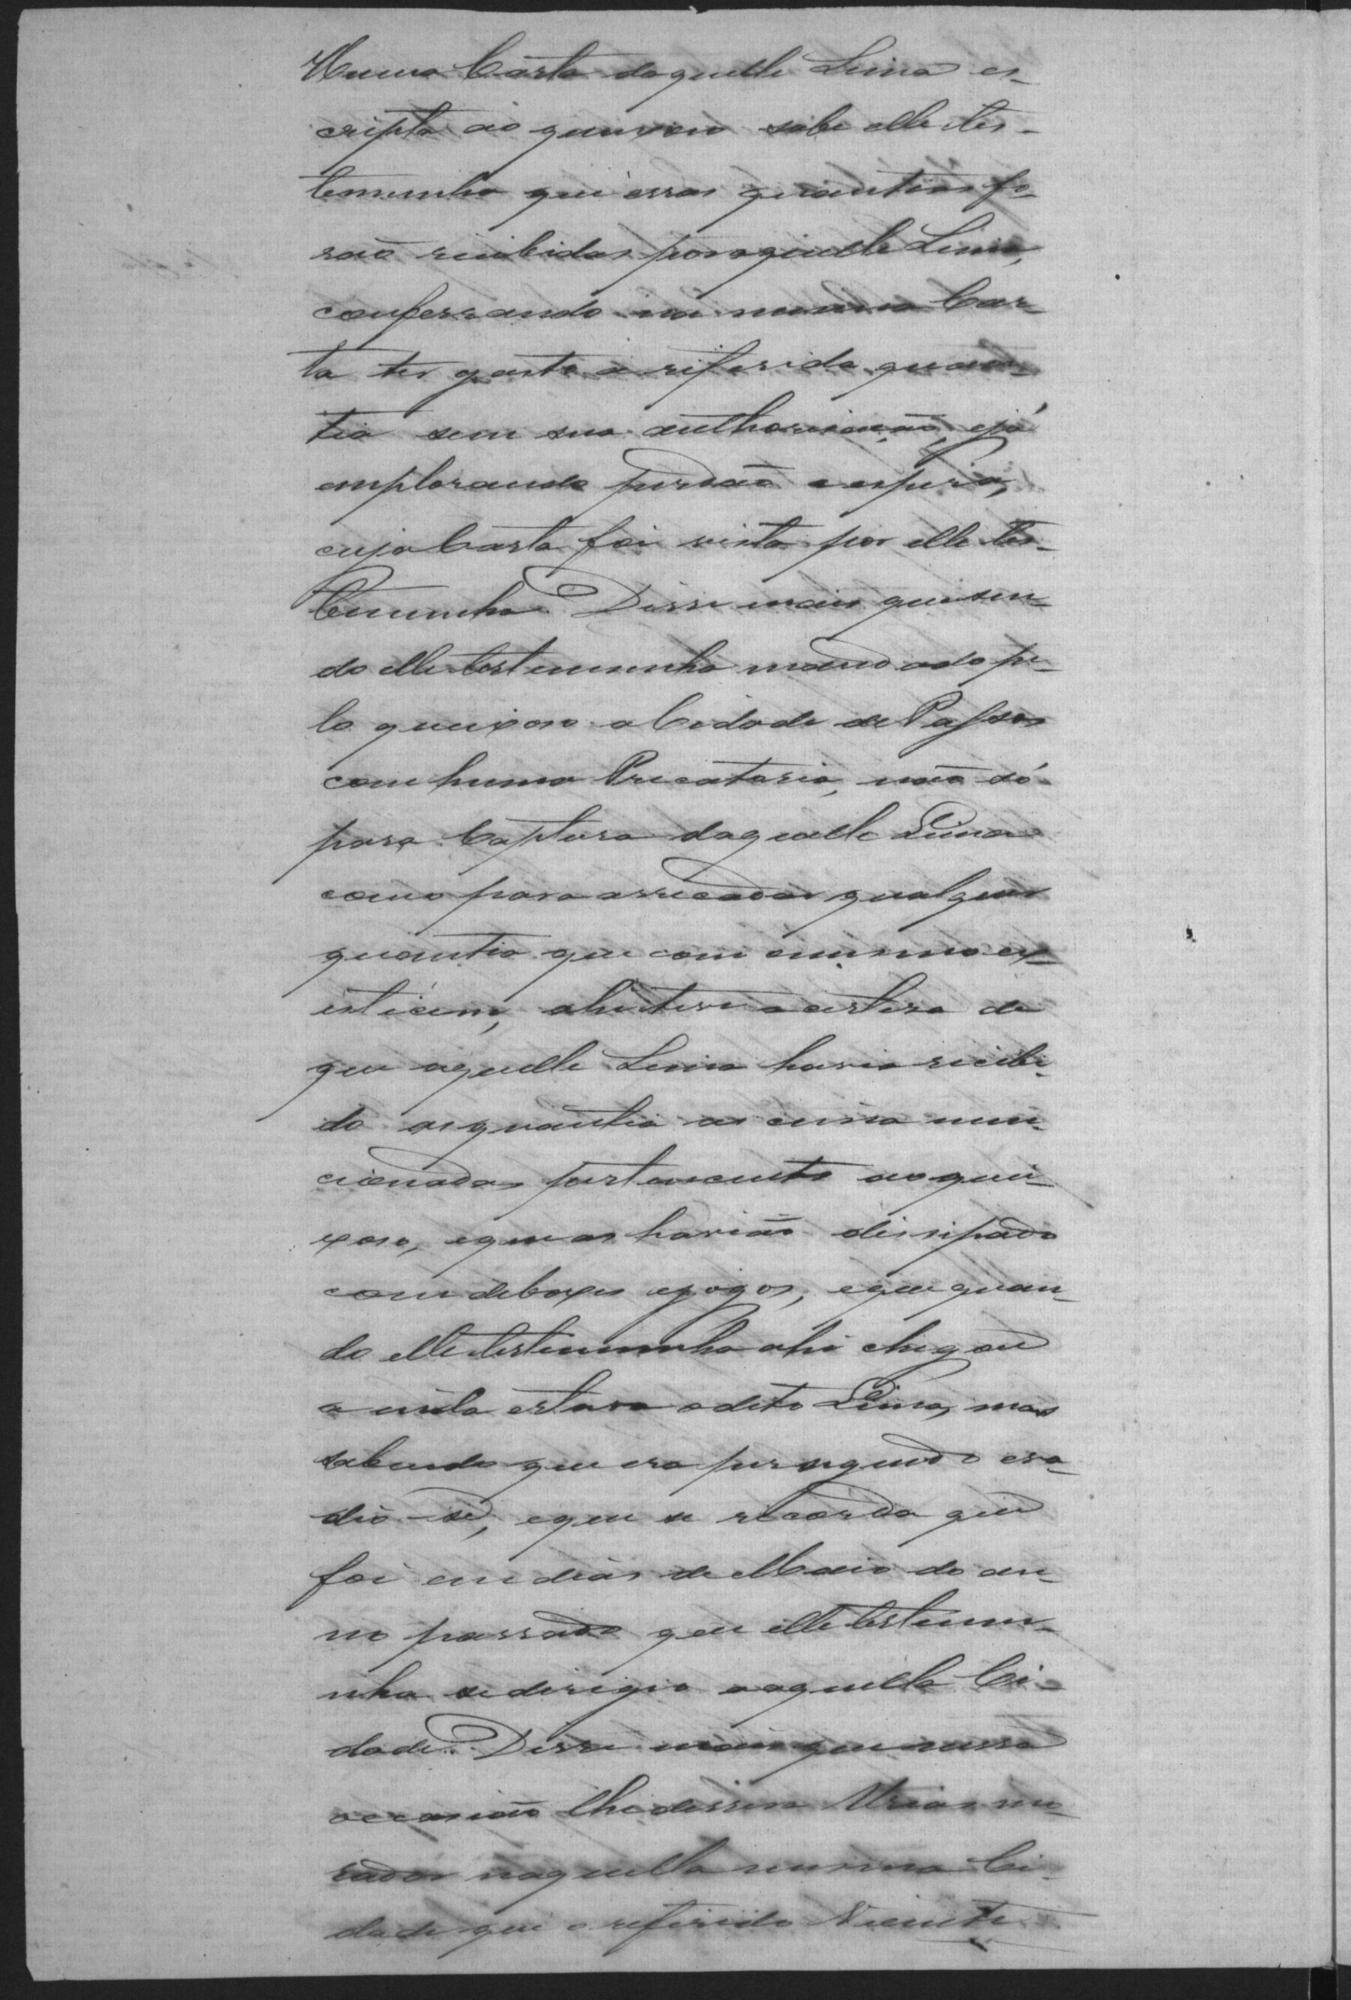 Huma Carta daquelle Lima es-
cripta ao queixoso sabe elle tes-
temunha que essas quantias fo-
raõ recibidas por aquelle Lima,
confessando na mesma Car-
ta ter gasto a riferida quan-
tia sem sua authorisaçaõ, e já
emplorando perdaõ e espera,
cuja Carta foi vista por elle tes-
temunha. Disse mais que sen-
do elle testemunha mandado pe-
lo queixoso a Cidade de Passos
com huma Precataria, naõ só
para Captura daquelle Lima
como para arrecadar qualquer
quantia que com o mesmo ex-
isticem, ahi teve a certesa de
que aquelle Lima havia recibi-
do as quantia as cima men-
cionadas pertencente ao quei-
xoso, e que as haviaõ dissipado
com deboxes e jogos, e que quan-
do elle testemunha ahi chegou
a inda estava o dito Lima, mas
sabendo que era perseguido eva-
dio-se, e que se recorda que
foi em dias de Maio do an-
no passado que elle testemu-
nha se dirigio a aquella Ci-
dade. Disse mais que nessa
occasiaõ lhe dissera Urias mo-
rador naquella mesma Ci-
dade que o referido Vicente